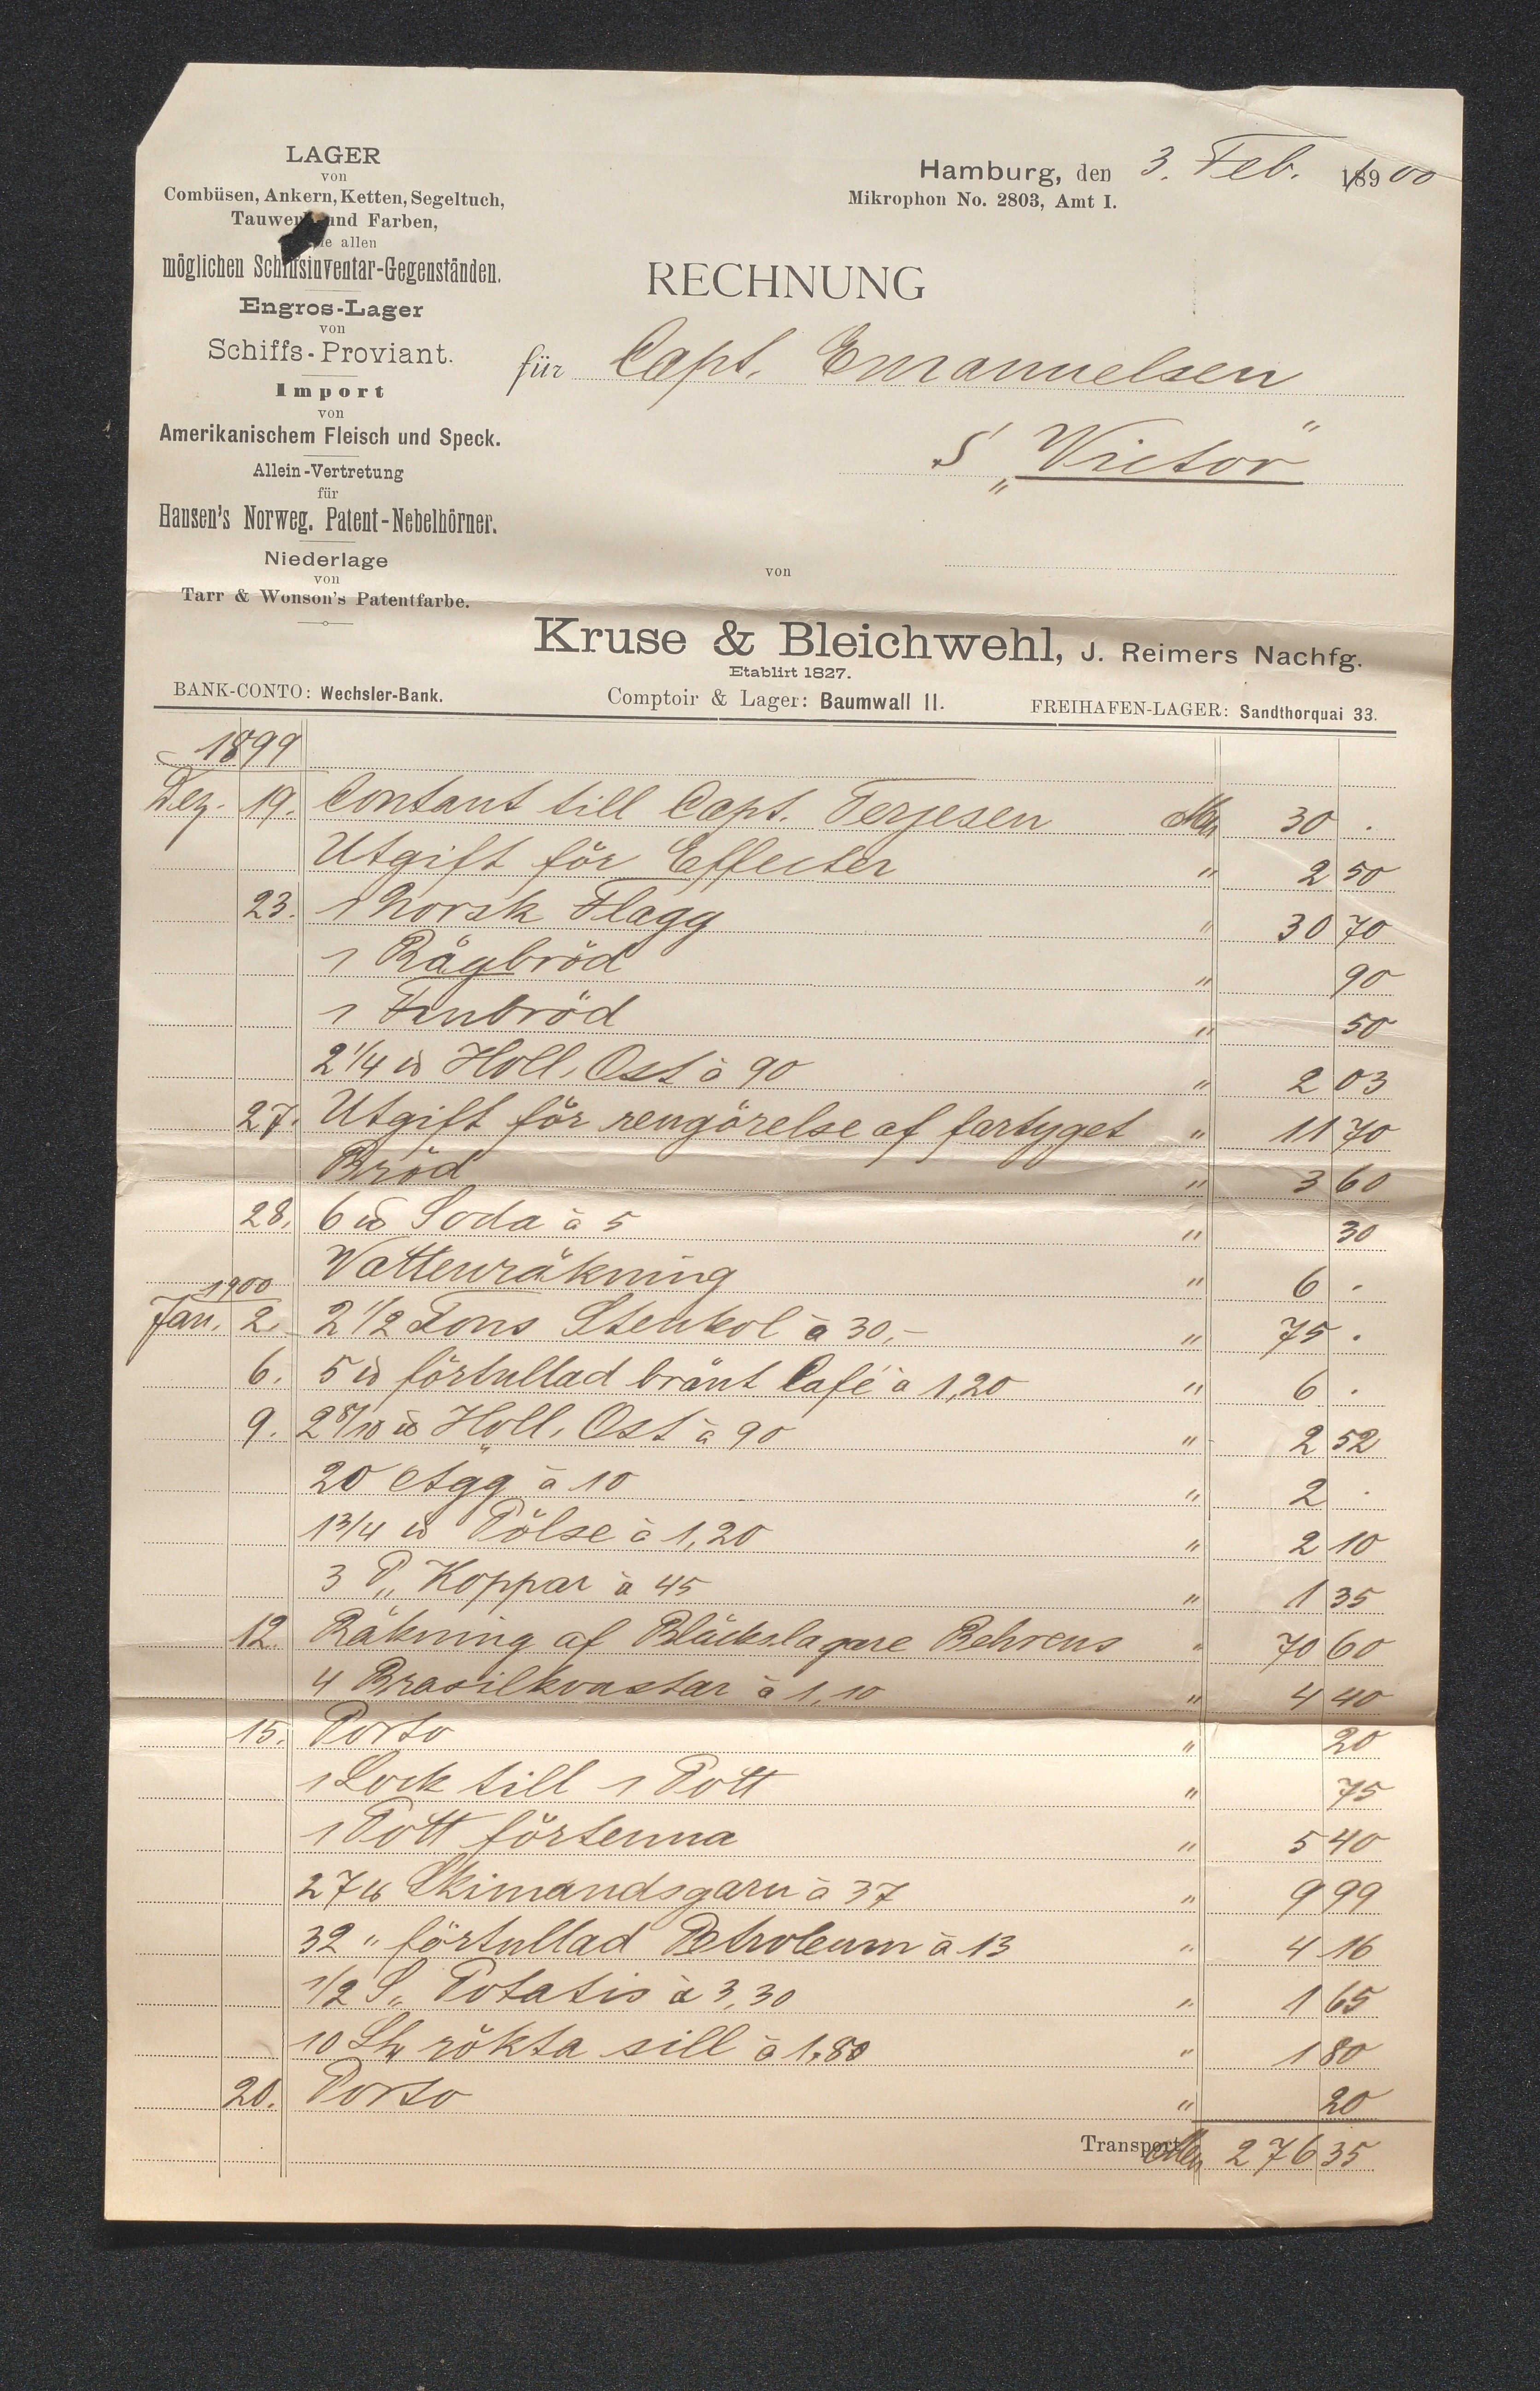 LAGER
von
Combüsen, Ankern, Ketten, Segeltuch,
Tauwerk und Farben,
allen
möglichen Schiffsinventar-Gegenständen.
Engros-Lager
von
Schiffs-Proviant.
Import
von
Amerikanischem Fleisch und Speck.
Allein-Vertretung
für
Hansen's Norweg. Patent-Nebelhörner.
Niederlage
von
Tarr & Wonson's Patentfarbe.
Hamburg, den 3. Feb. 1900
Mikrophon No. 2803, Amt I.
RECHNUNG
für Capt. Emanuelsen
S „Victor"
von
Kruse & Bleichwehl, J. Reimers Nachfg.
Etablirt 1827.
BANK-CONTO: Wechsler-Bank. Comptoir & Lager: Baumwall 11. FREIHAFEN-LAGER: Sandthorquai 33.
1899
Dez. 19. Contant till Capt. Terjesen Mk 30 .
Utgift för Effecter " 2 50
23. 1 Norsk Flagg " 30 70
1 Rågbröd " 90
1 Finbröd " 50
2 1/4 ℔ Holl. Ost à 90 " 2 03
27. Utgift för rengörelse af fartyget " 11 70
Bröd " 3 60
28. 6 ℔ Soda à 5 " 30
Vattenräkning " 6 .
1900
Jan. 2. 2 1/2 Tons Stenkol à 30,- " 75 .
6. 5 ℔ förtullad bränt Café à 1,20 " 6 .
9. 2 8/10 ℔ Holl. Ost à 90 " 2 52
20 Ägg à 10 " 2 .
1 3/4 ℔ Pölse à 1,20 " 2 10
3 P„ Koppar à 45 " 1 35
12. Räkning af Bläckslagare Behrens " 70 60
4 Brasilkvastar à 1,10 " 4 40
15. Porto " 20
1 Lock till 1 Pott " 75
1 Pott förtenna " 5 40
27 ℔ Skimandsgarn à 37 " 9 99
32 " förtullad Petroleum à 13 " 4 16
1/2 S„ Potatis à 3,30 " 1 65
10 St. rökta sill à 1,80 " 1 80
20. Porto " 20
Transport Mk 276 35